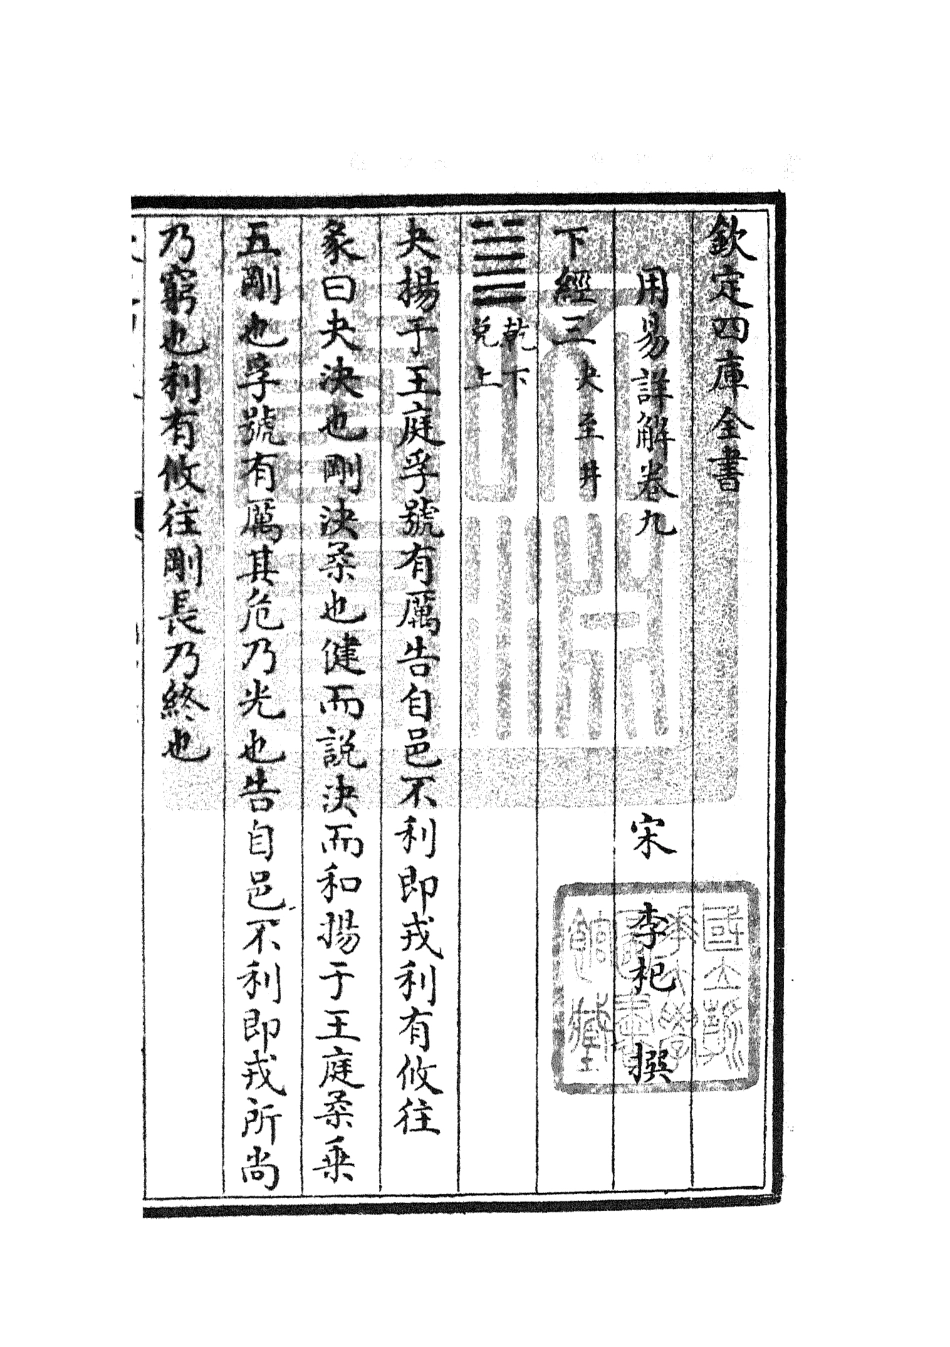 欽定四庫全書
用易詳解卷九 宋 李杞 撰
下經三 夬至井
䷪ 乾下 兌上
夬揚于王庭孚號有厲告自邑不利即戎利有攸往
彖曰夬決也剛決柔也健而説決而和揚于王庭柔乗
五剛也孚號有厲其危乃光也告自邑不利即戎所尚
乃窮也利有攸往剛長乃終也